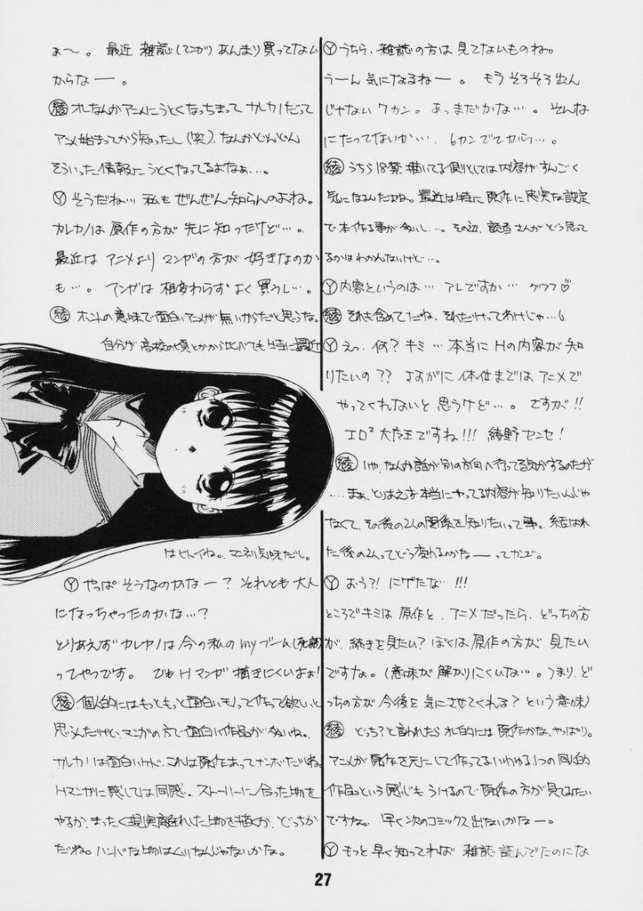 ぁ〜。最近 雑誌(てかり あんまり買ってない
からなー。
綾 オレなんかアニメにうとくなっちまって カレカノだって
アニメ始まってから知ったし(笑)。なんかどんどん
そういった情報にうとくなってるよなぁ…。
Y そうだね… 私も ぜんぜん知らんのよね。
カレカノは 原作の方が 先に知ったけど…。
最近は アニメより マンガの方が 好きなのか
も…。マンガは 相変わらず よく買うし…。
綾 ホントの意味で面白いアニメが無いからだと思うな。
自分が高校の頃とかから比べても 特に最近
はヒドイね。マンネリ気味だし。
Y やっぱ そうなのかなー? それとも 大人
になっちゃったのかな…?
とりあえず カレカノは 今の私の myブーム(死語)
ってやつです。 でもHマンガ 描きにくいよぉ!
綾 個人的にはもっともっと面白いモノって作って欲しいと
思うんだけど、マンガの方で面白い作品が多いね。
カレカノは面白いけど、これは原作あってナンボだしね。
Hマンガに関しては同感。ストーリーに合った物を
やるか、まったく現実離れした物を描くか、どっちか
だね。ハンパな物はムリなんじゃないかな。
Y うちら、雑誌の方は 見てないものね。
うーん 気になるねー。 もう そろそろ 出ん
じゃない ワカン。 あっ まだかな…。 そんな
にたってないか…、 6カンでてから…。
綾 うちら同人誌描いてる側としては内容がすんごく
気になるんだよね。最近は特に、原作に忠実な設定
で本作る事が多いし…。その辺、読者さんがどう思って
るかはわかんないけど…。
Y 内容というのは… アレですか… ウフフ♡
綾 それも含めてだね、それだけってわけじゃ…6
Y えっ、何? キミ… 本当に Hの内容が知
りたいの?? さすがに 体位までは アニメで
やってくれないと 思うけど…。 ですが!!
エロ²大魔王ですね!!! 綾野センセ!
綾 いや、なんか話が別の方向へ行ってる気がするのだが
…まぁ、とりあえず本当にヤッてる内容が知りたいんじゃ
なくて、その後の2人の関係を知りたいって事。結ばれ
た後の2人ってどう変わるのかなーってカンジ。
Y おう?! にげたな…!!!
ところでキミは 原作と、アニメだったら、どっちの方
が、続きを見たい? ぼくは 原作の方が 見たい
ですな。(意味が 解かりにくいな…。つまり、ど
っちの方が 今後を 気にさせてくれる? という意味)
綾 どっち?と言われたら オレ的には 原作かな、やっぱり。
アニメが原作を元にして作ってるいわゆる1つの同人的
作品っという感じもうけるので 原作の方が見てみたい
ですね。 早く次のコミックス出ないかなー。
Y もっと早く知ってれば 雑誌 読んでたのにな
27